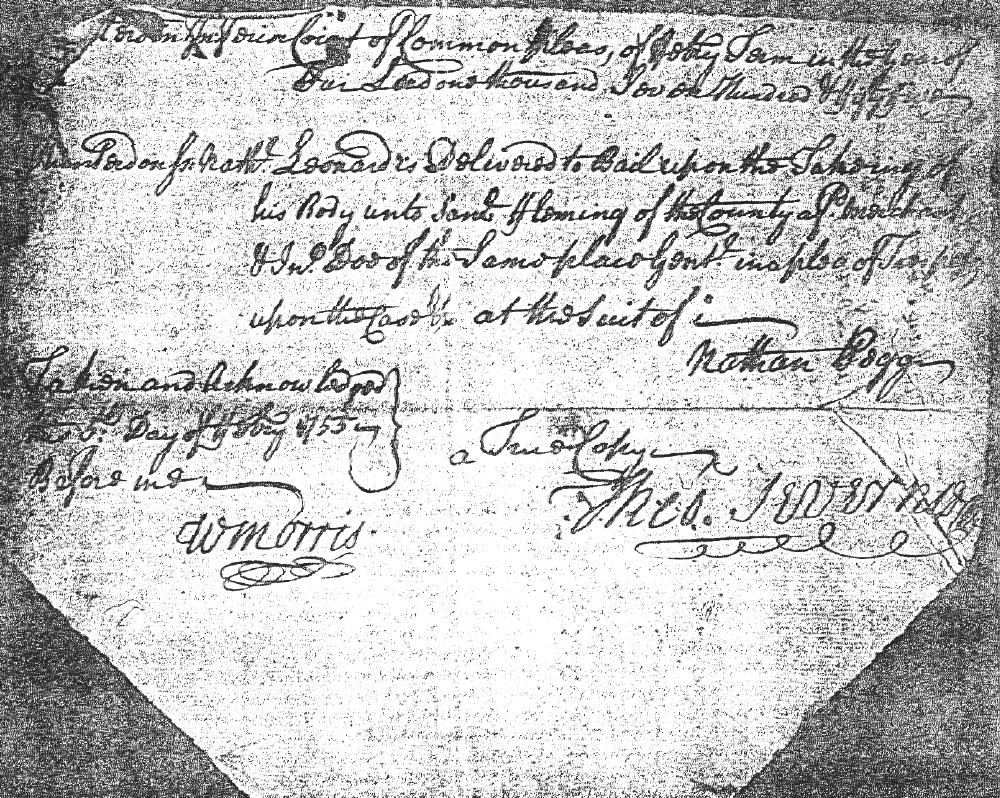 Inferior Court of Common Pleas, of Feb:ry Term in the Year of
Our Lord one thousand Seven Hundred &
Nath.ll Leonard is Delivered to Bail upon the Takeing of
his Body unto Sam.ll Fleming of the County afs.d
& Jn.o Doe of the Same place Gent.n in a plea of Trespass
upon the Case &c at the Suit of
Nathan Pegg
Taken and Acknowledged
Day of Feb:ry 1755
Before me
a True Copy
W Morris
Theo. Severns